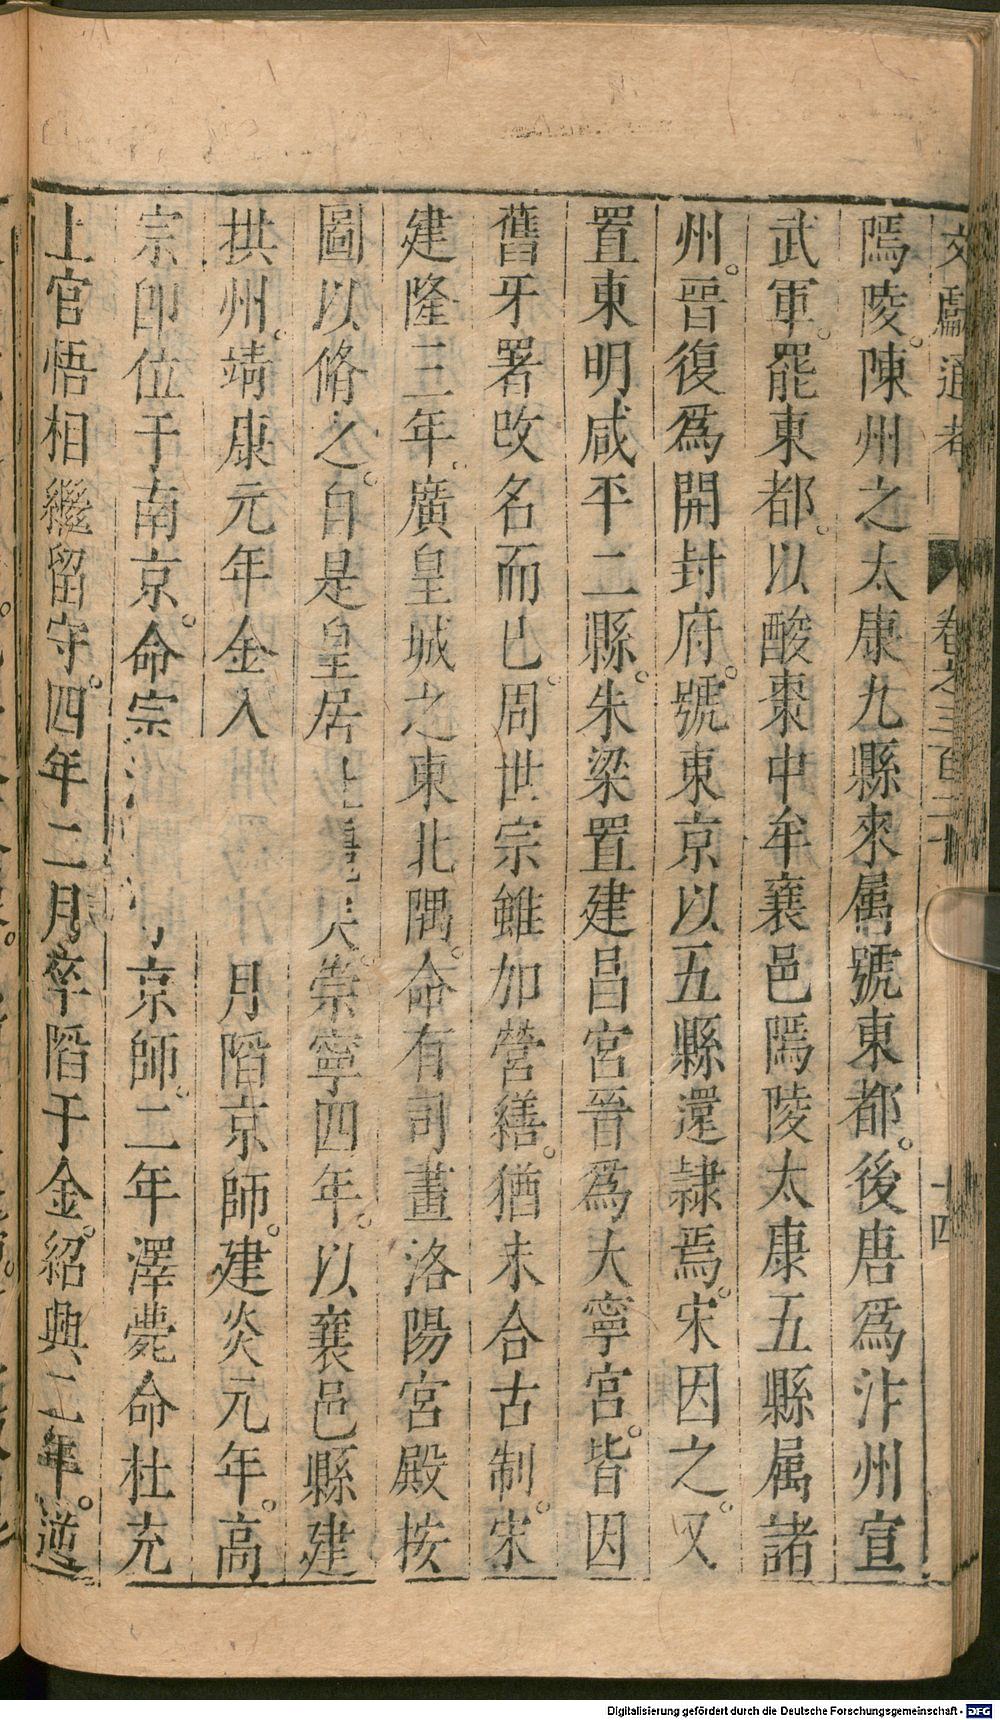 文獻通考 卷之三百二十 十四
隝陵。陳州之太康九縣來属號東都。後唐爲汴州宣
武軍。罷東都。以酸棗中牟襄邑隝陵太康五縣属諸
州。晉復爲開封府。號東京以五縣還隷焉。宋因之。又
置東明咸平二縣。朱梁置建昌宮晉爲大寧宮。皆因
舊牙署改名而已。周世宗雖加營繕。猶未合古制。宋
建隆三年。廣皇城之東北隅。命有司畫洛陽宮殿按
圖以脩之。自是皇居 崇寧四年。以襄邑縣建
拱州。靖康元年金入 月陷京師。建炎元年。高
宗卽位于南京。命宗 京師。二年澤薨命杜充
上官悟相繼留守。四年二月卒陷于金。紹興二年。逆
Digitalisierung gefördert durch die Deutsche Forschungsgemeinschaft - DFG